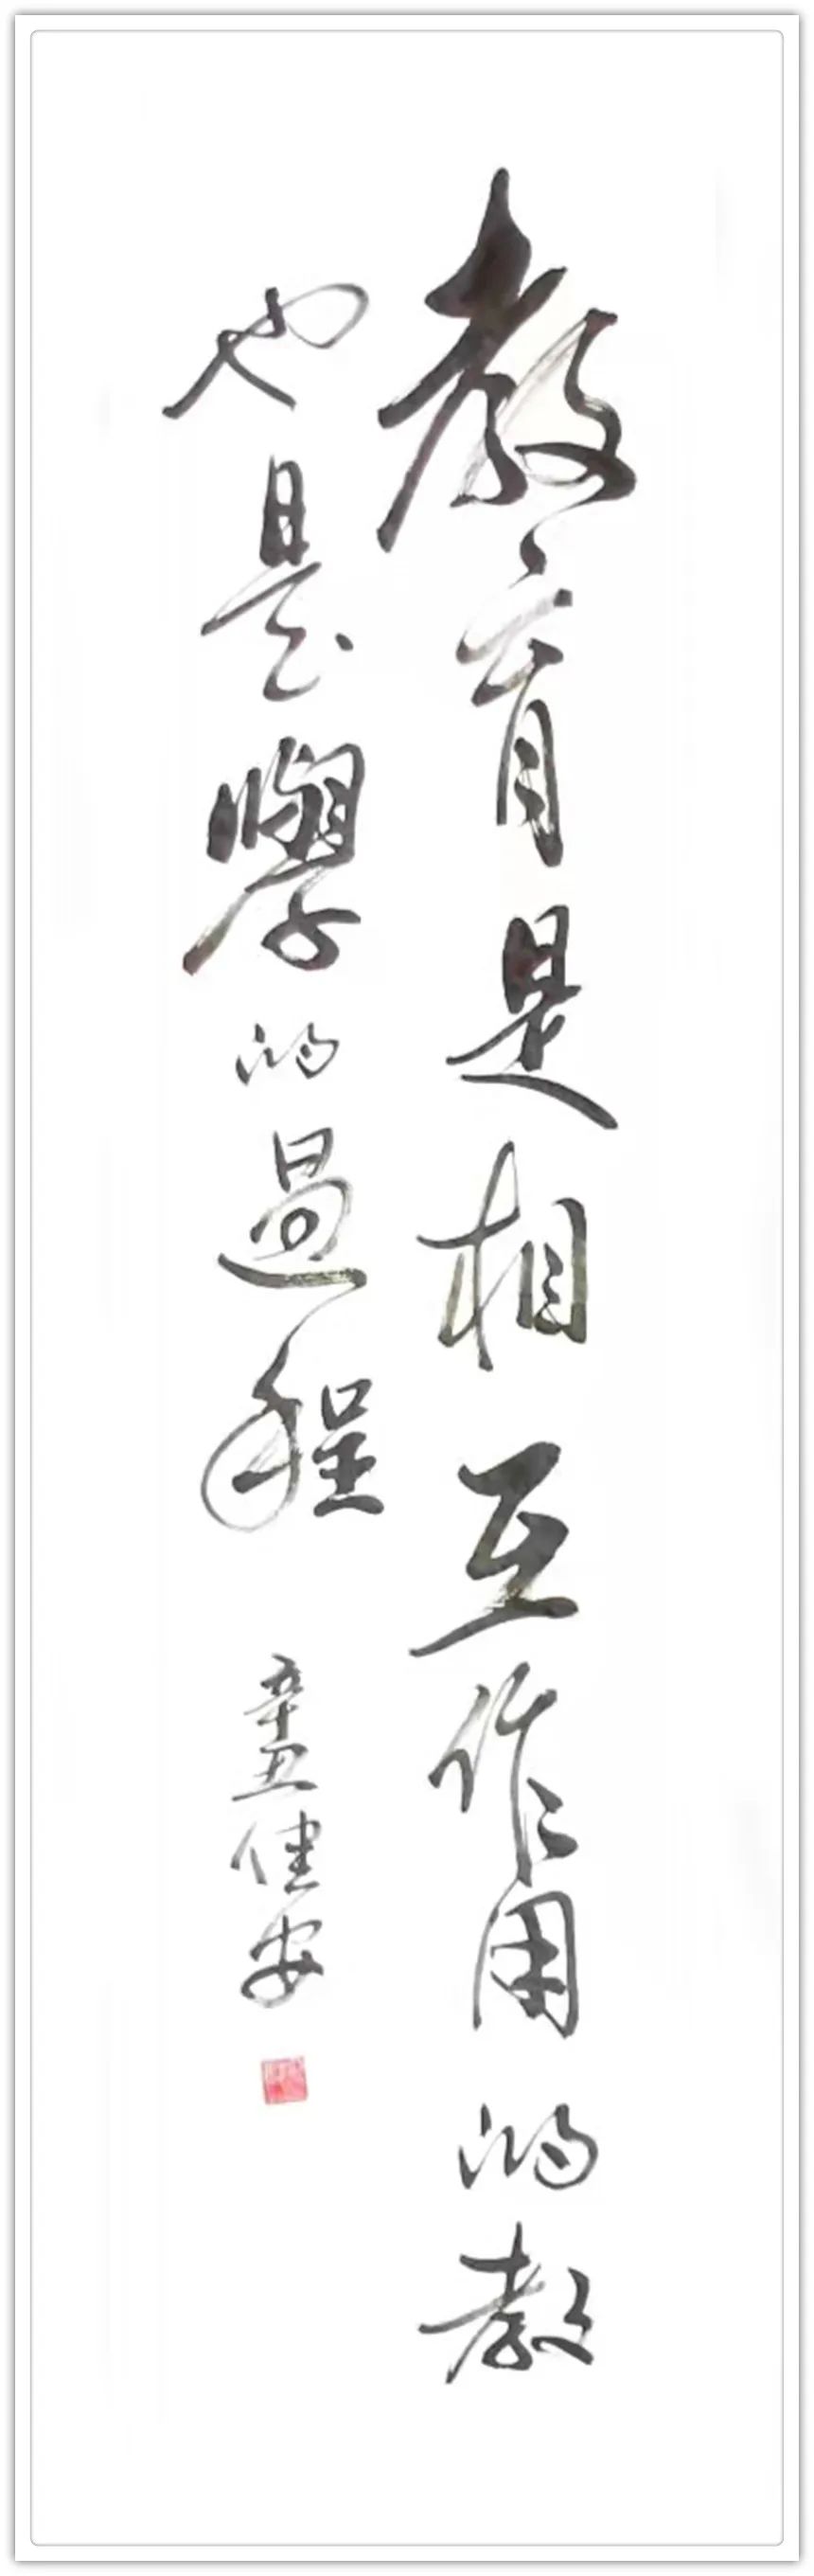 教育是相互作用的教
也是學的過程
辛丑健安